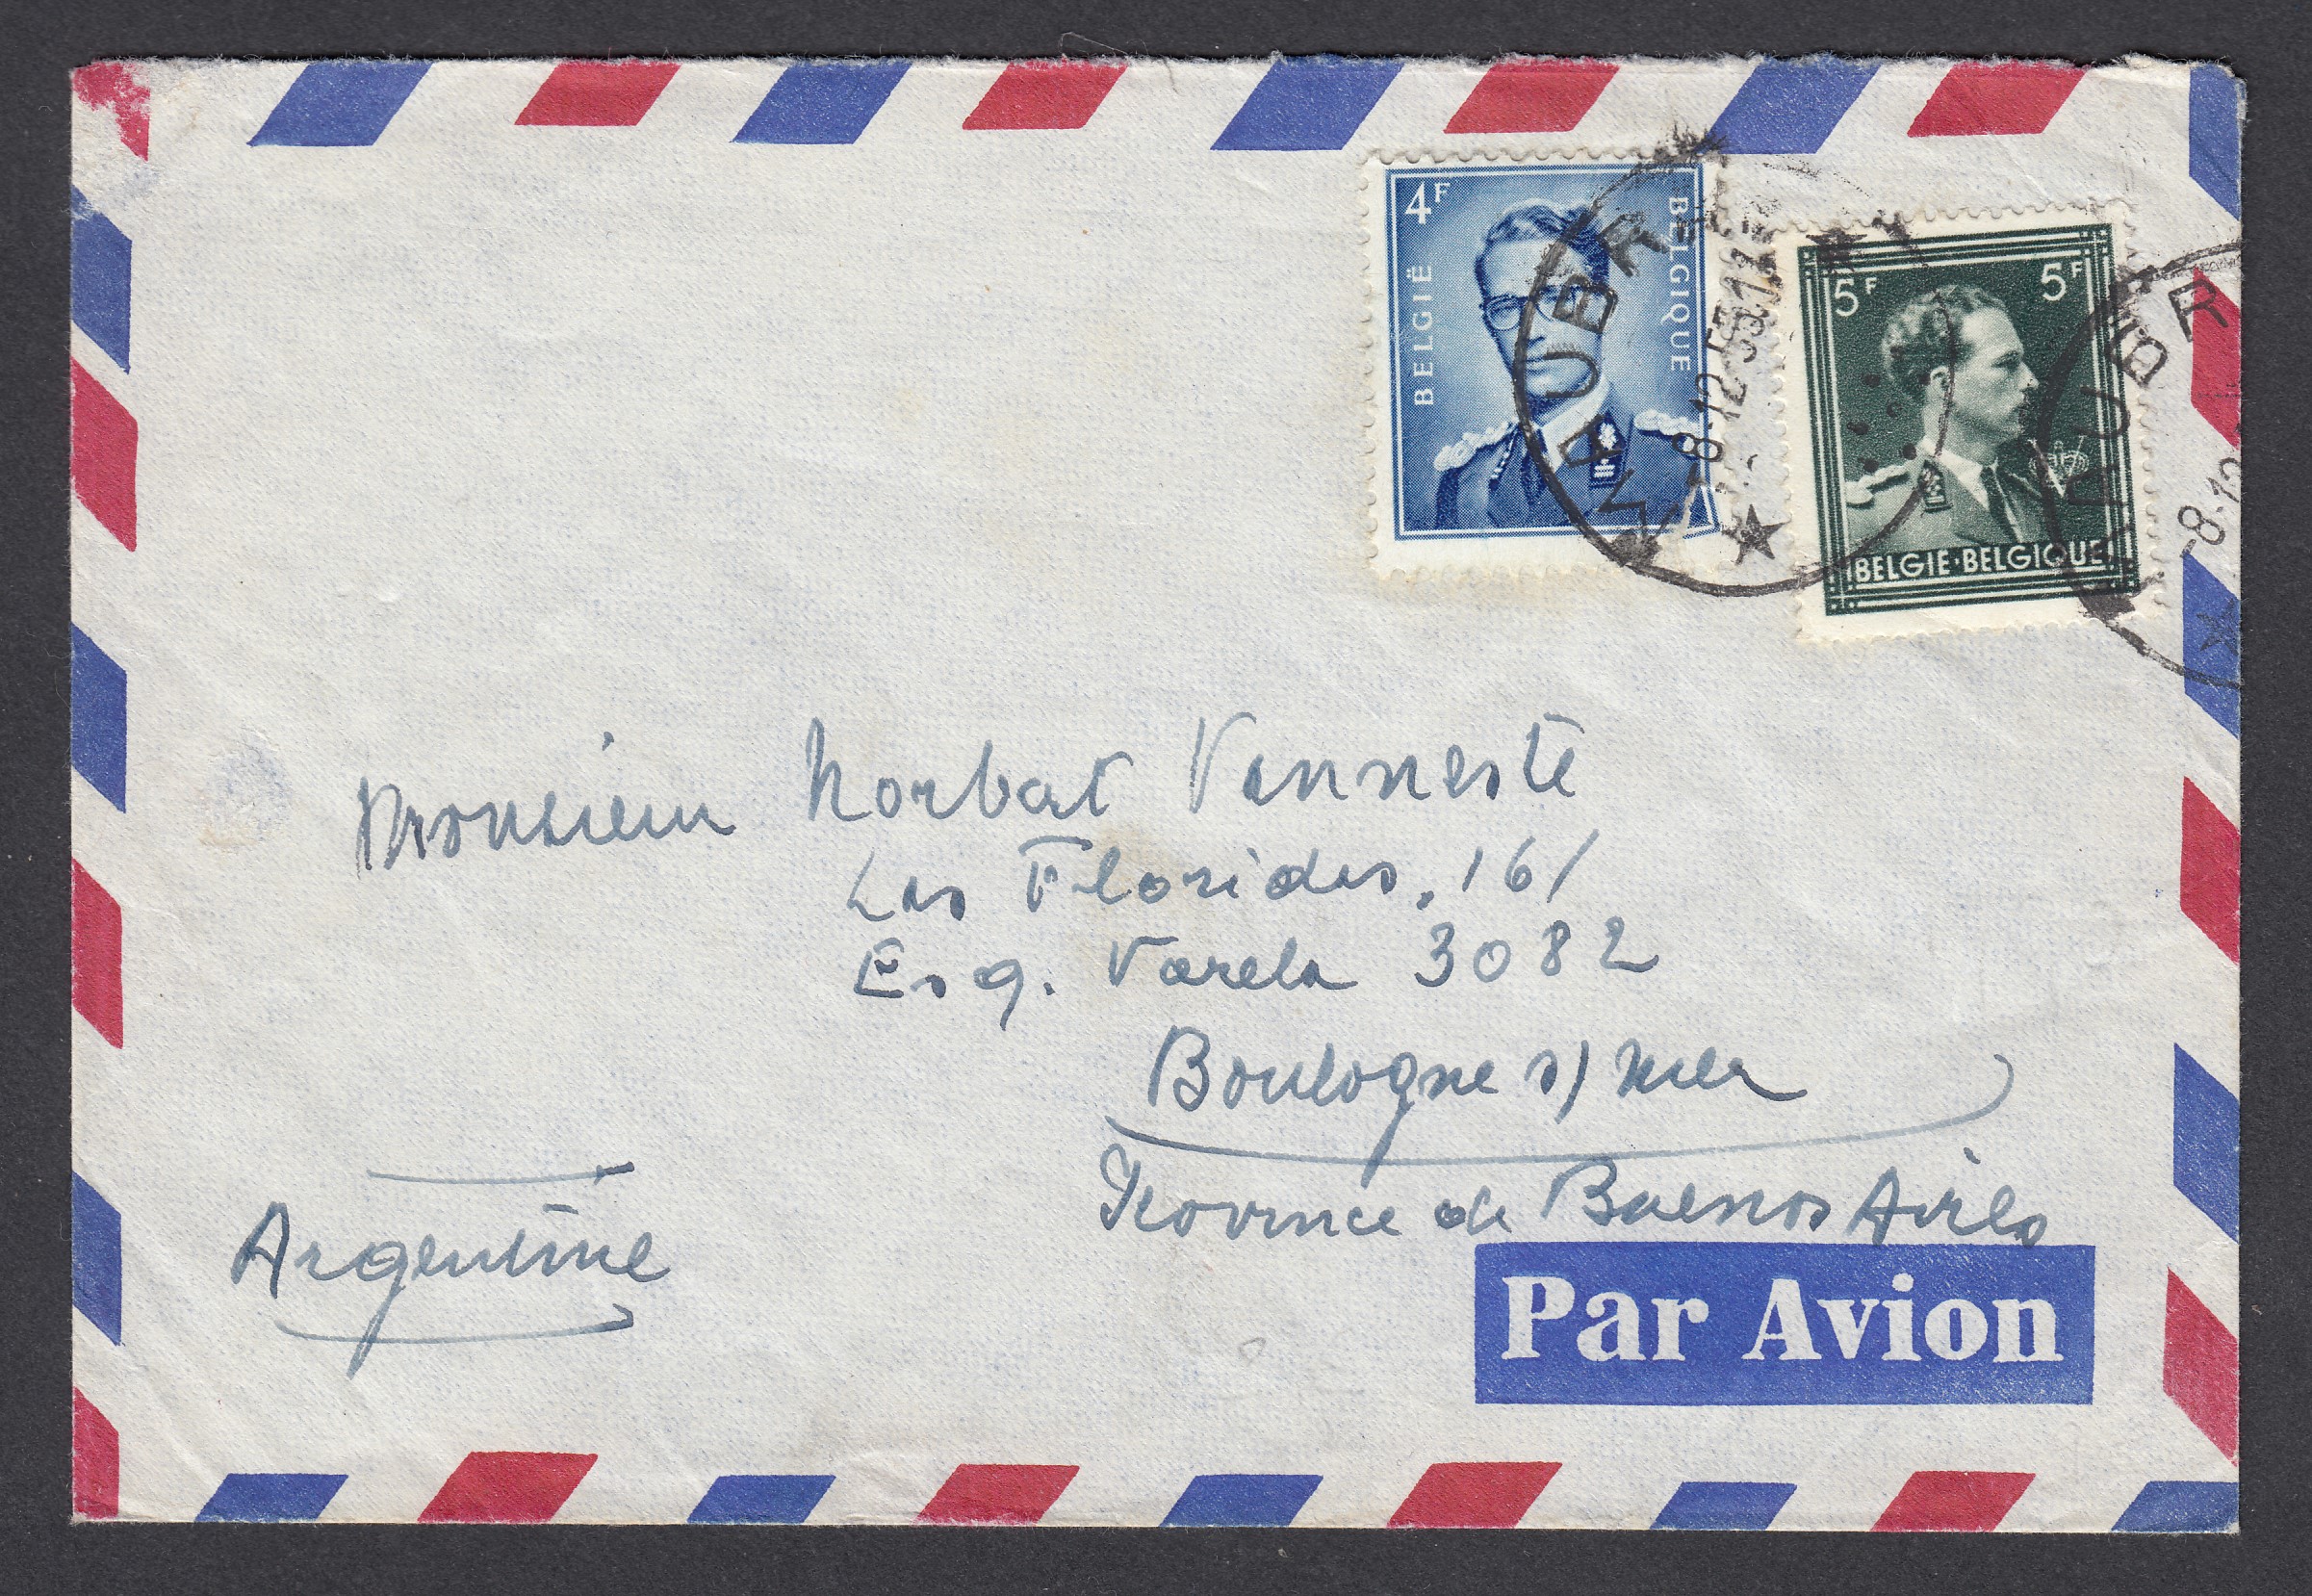 4F
BELGIË
BELGIQUE
5F
5F
BELGIE·BELGIQUE
-8.12
-8.12
Monsieur Norbert Vanneste
Las Floridas, 161
Esq. Varela 3082
Boulogne s/mer
Province de Buenos Aires
Argentine
Par Avion